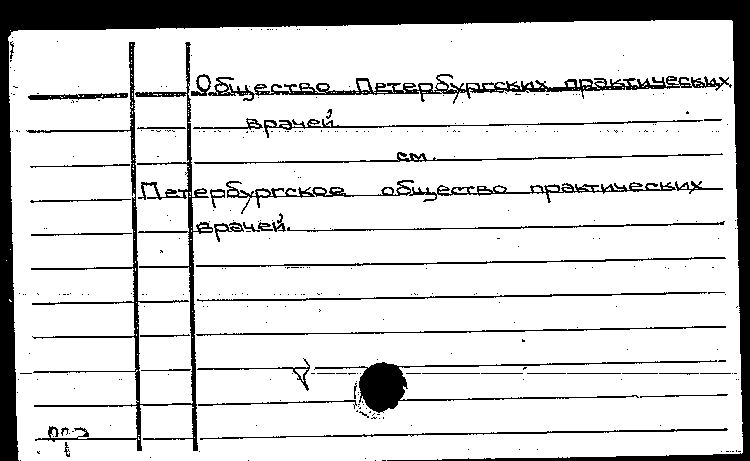 Общество Петербургских практических
врачей
см.
Петербургское общество практических
врачей.